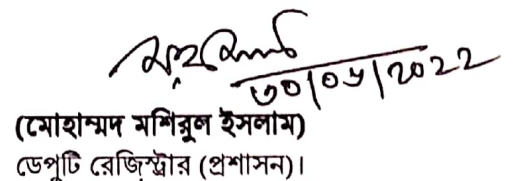 ৩০/০৬/2022
(মোহাম্মদ মশিরুল ইসলাম)
ডেপুটি রেজিস্ট্রার (প্রশাসন)।